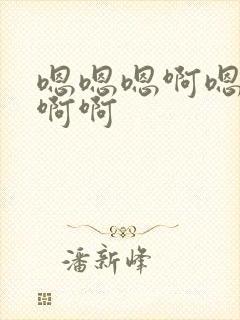 嗯嗯嗯啊嗯
啊啊
潘新峰